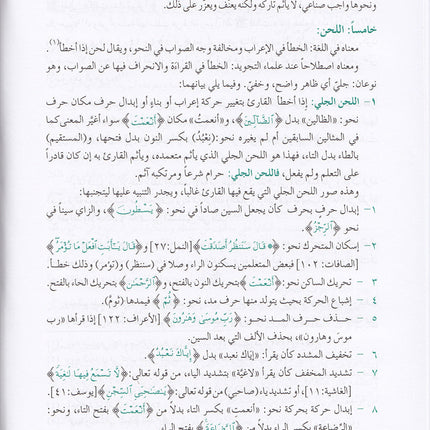 ونحوها واجب صناعي، لا يأثم تاركه ولكنه يعنف ويعزر على ذلك.
خامساً: اللحن:
معناه في اللغة: الخطأ في الإعراب ومخالفة وجه الصواب في النحو، ويقال لحن إذا أخطأ(١).
ومعناه اصطلاحاً عند علماء التجويد: الخطأ في القراءة والانحراف فيها عن الصواب، وهو
نوعان: جليّ أي ظاهر واضح، وخفيّ. وفيما يلي بيانهما:
١- اللحن الجلي: إذا أخطأ القارئ بتغيير حركة إعراب أو بناءٍ أو إبدال حرف مكان حرف
نحو: «الظالين» بدل ﴿الضَّالِّينَ﴾، و«أنعمتُ» مكان ﴿أَنْعَمْتَ﴾ سواء أغيّر المعنى كما
في المثالين السابقين أم لم يغيره نحو: (نعْبُدُ) بكسر النون بدل فتحها، و(المستقيم)
بالطاء بدل التاء، فهذا هو اللحن الجلي الذي يأثم متعمده، ويأثم القارئ به إن كان قادراً
على التعلم ولم يفعل، فاللحن الجلي: حرام شرعاً ومرتكبه آثم.
وهذه صور اللحن الجلي التي يقع فيها القارئ غالباً، ويجدر التنبيه عليها ليتجنبها:
١- إبدال حرفٍ بحرف كأن يجعل السين صاداً في نحو: ﴿يَسْطُونَ﴾، والزاي سيناً في
نحو ﴿الرِّجْزُ﴾.
٢- إسكان المتحرك نحو: ﴿قَالَ سَنَنظُرُ أَصَدَقْتَ﴾ [النمل:٢٧] و﴿قَالَ يَٰٓأَبَتِ افْعَلْ مَا تُؤْمَرُ﴾
[الصافات: ١٠٢] فبعض المتعلمين يسكنون الراء وصلا في (سننظر) و(تؤمر) وذلك خطـأ.
٣- تحريك الساكن نحو: ﴿أَنْعَمْتَ﴾ بتحريك النون بالفتح، و﴿الرَّحْمَٰنِ﴾ بتحريك الحاء بالفتح.
٤- إشباع الحركة بحيث يتولد منها حرف مد، نحو: ﴿ثُمَّ﴾ فيمدها (ثُومَّ).
٥- حـذف حرف المـد نحـو: ﴿رَبِّ مُوسَىٰ وَهَٰرُونَ﴾ [الأعراف: ١٢٢] إذا قرأها «رب
موسَ وهارون»، بحذف الألف التي بعد السين.
٦- تخفيف المشدد كأن يقرأ: «إياك نعبد» بدل ﴿إِيَّاكَ نَعْبُدُ﴾.
٧- تشديد المخفف كأن يقرأ «لاغيَّة» بتشديد الياء، من قوله تعالى: ﴿لَّا تَسْمَعُ فِيهَا لَٰغِيَةً﴾
[الغاشية:١١]، أو تشديد ياء (صاحبي) من قوله تعالى: ﴿يَٰصَٰحِبَيِ السِّجْنِ﴾ [يوسف:٤١].
٨- إبدال حركة بحركة نحو: «أنعمت» بكسر التاء بدلاً من ﴿أَنْعَمْتَ﴾ بفتح التاء، ونحو:
«الرِّضاعة» بكسر الراء بدلاً من ﴿الرَّضَاعَةَ﴾ بفتح الراء